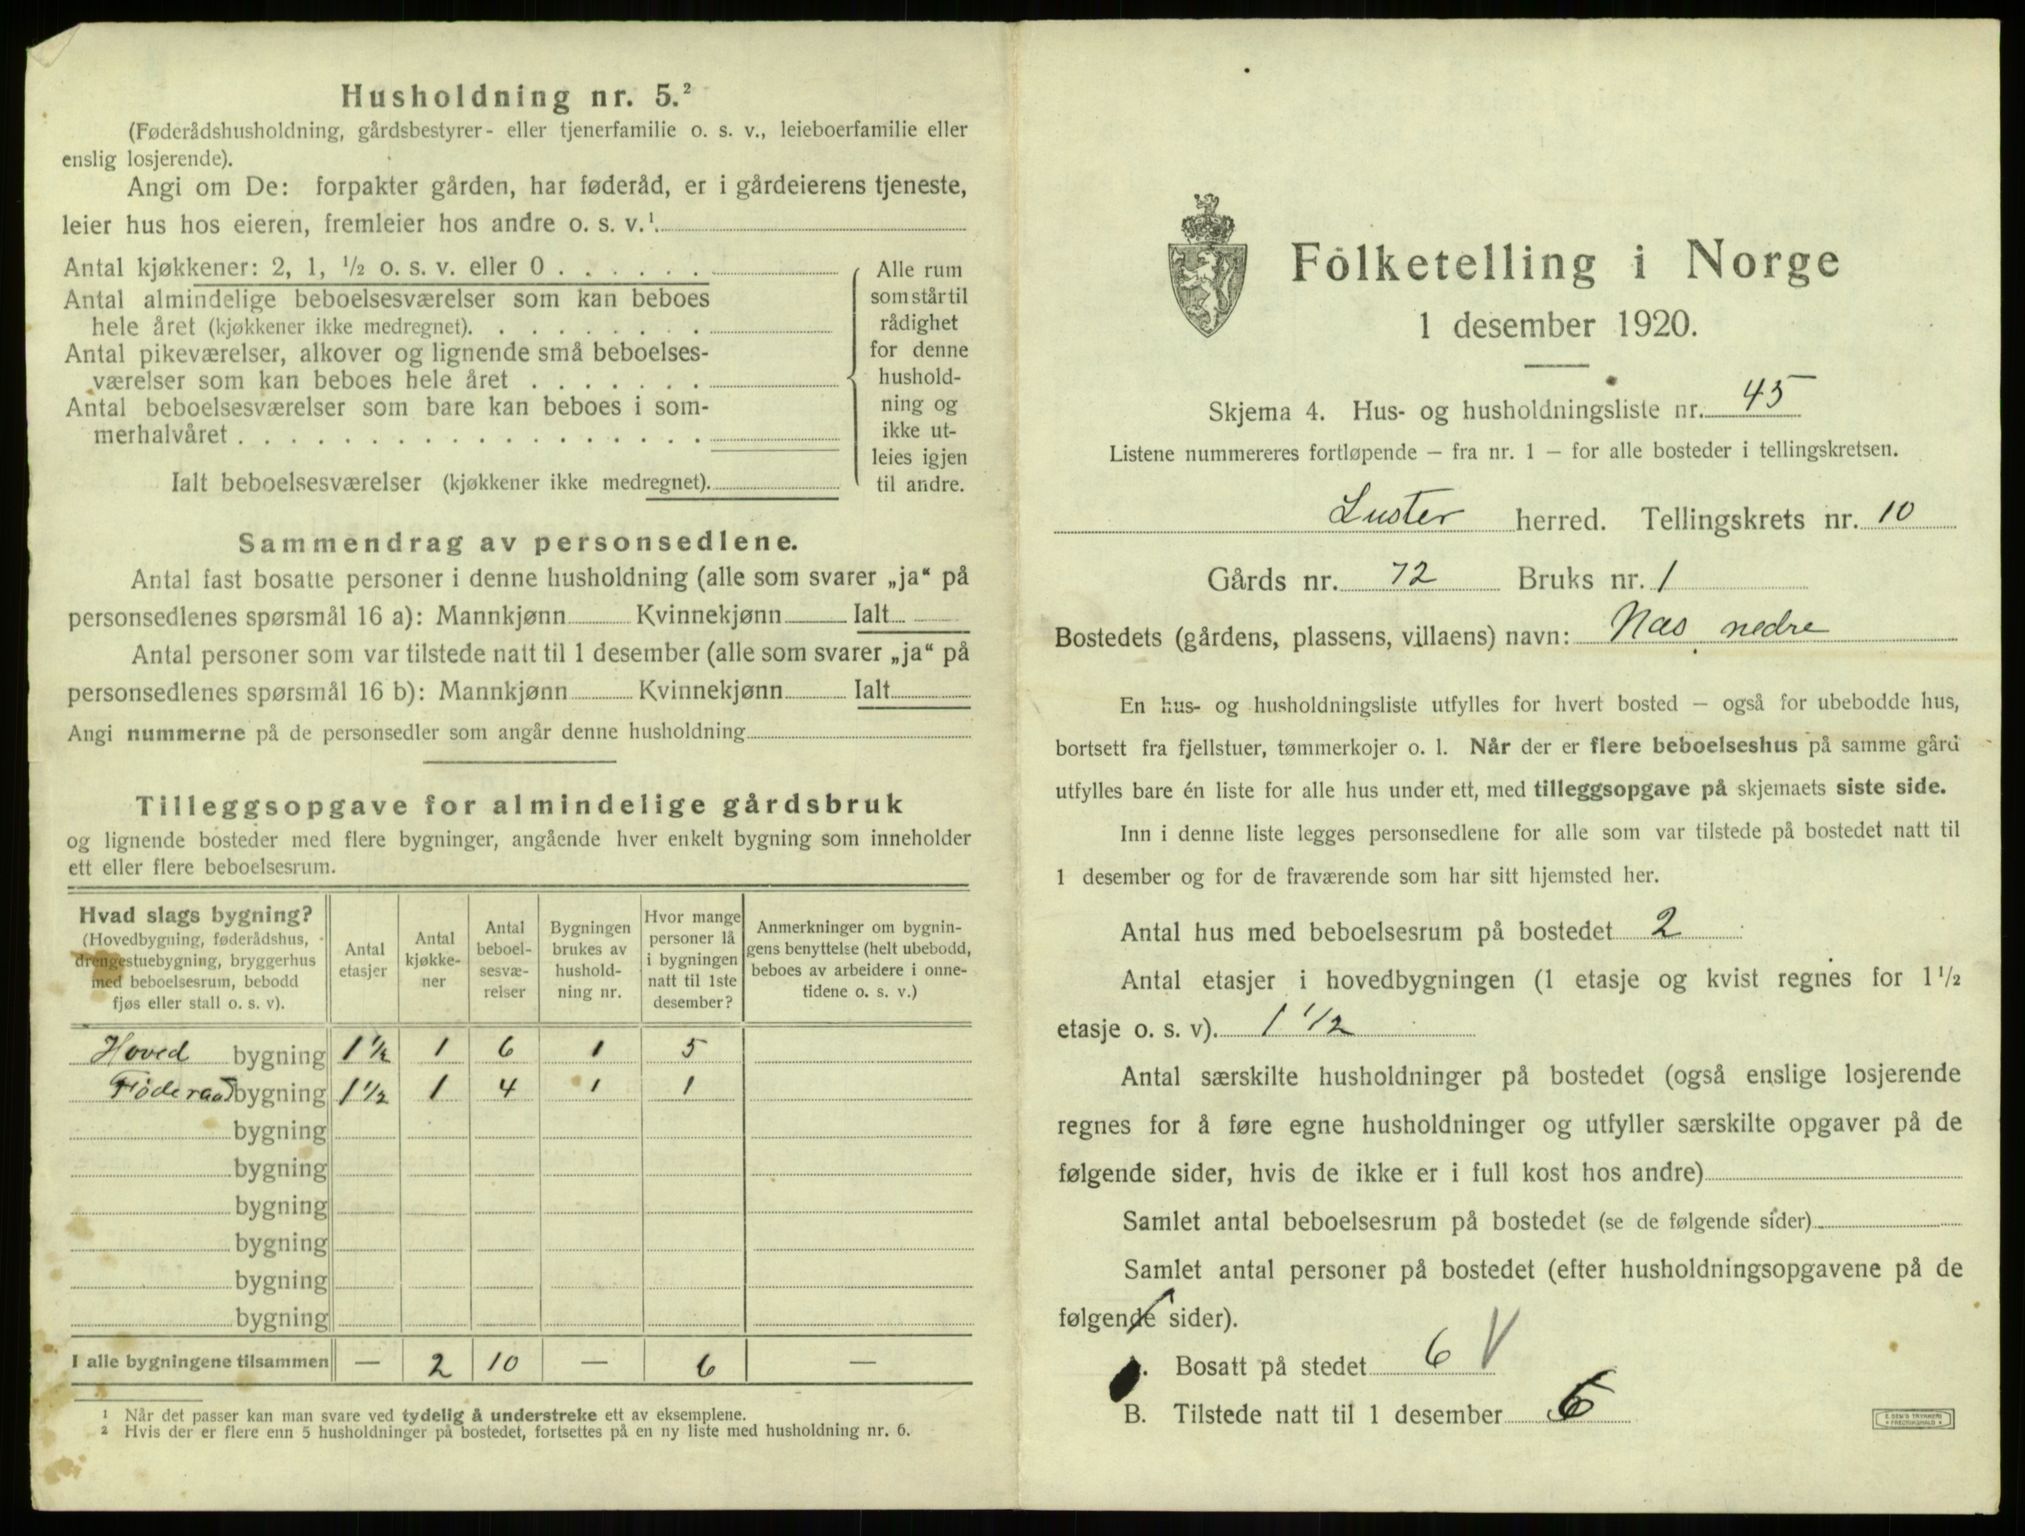 Husholdning nr. 5.²
(Føderådshusholdning, gårdsbestyrer- eller tjenerfamilie o. s. v., leieboerfamilie eller
enslig losjerende).
Angi om De: forpakter gården, har føderåd, er i gårdeierens tjeneste,
leier hus hos eieren, fremleier hos andre o. s. v.¹.
Antal kjøkkener: 2, 1, ½ o. s. v. eller 0 . . . . . .
Antal almindelige beboelsesværelser som kan beboes
hele året (kjøkkener ikke medregnet). . . . . . . . .
Antal pikeværelser, alkover og lignende små beboelses-
værelser som kan beboes hele året . . . . . . .
Antal beboelsesværelser som bare kan beboes i som-
merhalvåret . . . . . . . . . . . . . . . . . .
Ialt beboelsesværelser (kjøkkener ikke medregnet).
Alle rum
som står til
rådighet
for denne
hushold-
ning og
ikke ut-
leies igjen
til andre.
Sammendrag av personsedlene.
Antal fast bosatte personer i denne husholdning (alle som svarer „ja“ på
personsedlenes spørsmål 16 a): Mannkjønn Kvinnekjønn Ialt
Antal personer som var tilstede natt til 1 desember (alle som svarer „ja“ på
personsedlenes spørsmål 16 b): Mannkjønn Kvinnekjønn Ialt
Angi nummerne på de personsedler som angår denne husholdning
Tilleggsopgave for almindelige gårdsbruk
og lignende bosteder med flere bygninger, angående hver enkelt bygning som inneholder
ett eller flere beboelsesrum.
Hvad slags bygning?
(Hovedbygning, føderådshus,
drengestuebygning, bryggerhus
med beboelsesrum, bebodd
fjøs eller stall o. s. v).
Antal
etasjer
Antal
kjøkke-
ner
Antal
beboel-
sesvæ-
relser
Bygningen
brukes av
hushold-
ning nr.
Hvor mange
personer lå
i bygningen
natt til 1ste
desember?
Anmerkninger om bygnin-
gens benyttelse (helt ubebodd,
beboes av arbeidere i onne-
tidene o. s. v.)
Hoved bygning 1½ 1 6 1 5
Føderaad bygning 1½ 1 4 1 1
bygning
bygning
bygning
bygning
bygning
bygning
I alle bygningene tilsammen — 2 10 — 6 —
¹ Når det passer kan man svare ved tydelig å understreke ett av eksemplene.
² Hvis der er flere enn 5 husholdninger på bostedet, fortsettes på en ny liste med husholdning nr. 6.
Folketelling i Norge
1 desember 1920.
Skjema 4. Hus- og husholdningsliste nr. 45
Listene nummereres fortløpende — fra nr. 1 — for alle bosteder i tellingskretsen.
Luster herred. Tellingskrets nr. 10
Gårds nr. 72 Bruks nr. 1
Bostedets (gårdens, plassens, villaens) navn: Næs nedre
En hus- og husholdningsliste utfylles for hvert bosted — også for ubebodde hus,
bortsett fra fjellstuer, tømmerkojer o. l. Når der er flere beboelseshus på samme gård
utfylles bare én liste for alle hus under ett, med tilleggsopgave på skjemaets siste side.
Inn i denne liste legges personsedlene for alle som var tilstede på bostedet natt til
1 desember og for de fraværende som har sitt hjemsted her.
Antal hus med beboelsesrum på bostedet 2
Antal etasjer i hovedbygningen (1 etasje og kvist regnes for 1½
etasje o. s. v). 1½
Antal særskilte husholdninger på bostedet (også enslige losjerende
regnes for å føre egne husholdninger og utfyller særskilte opgaver på de
følgende sider, hvis de ikke er i full kost hos andre)
Samlet antal beboelsesrum på bostedet (se de følgende sider)
Samlet antal personer på bostedet (efter husholdningsopgavene på de
følgende sider).
Bosatt på stedet 6 V
B. Tilstede natt til 1 desember 6
E. SEM'S TRYKKERI
FREDRIKSHALD